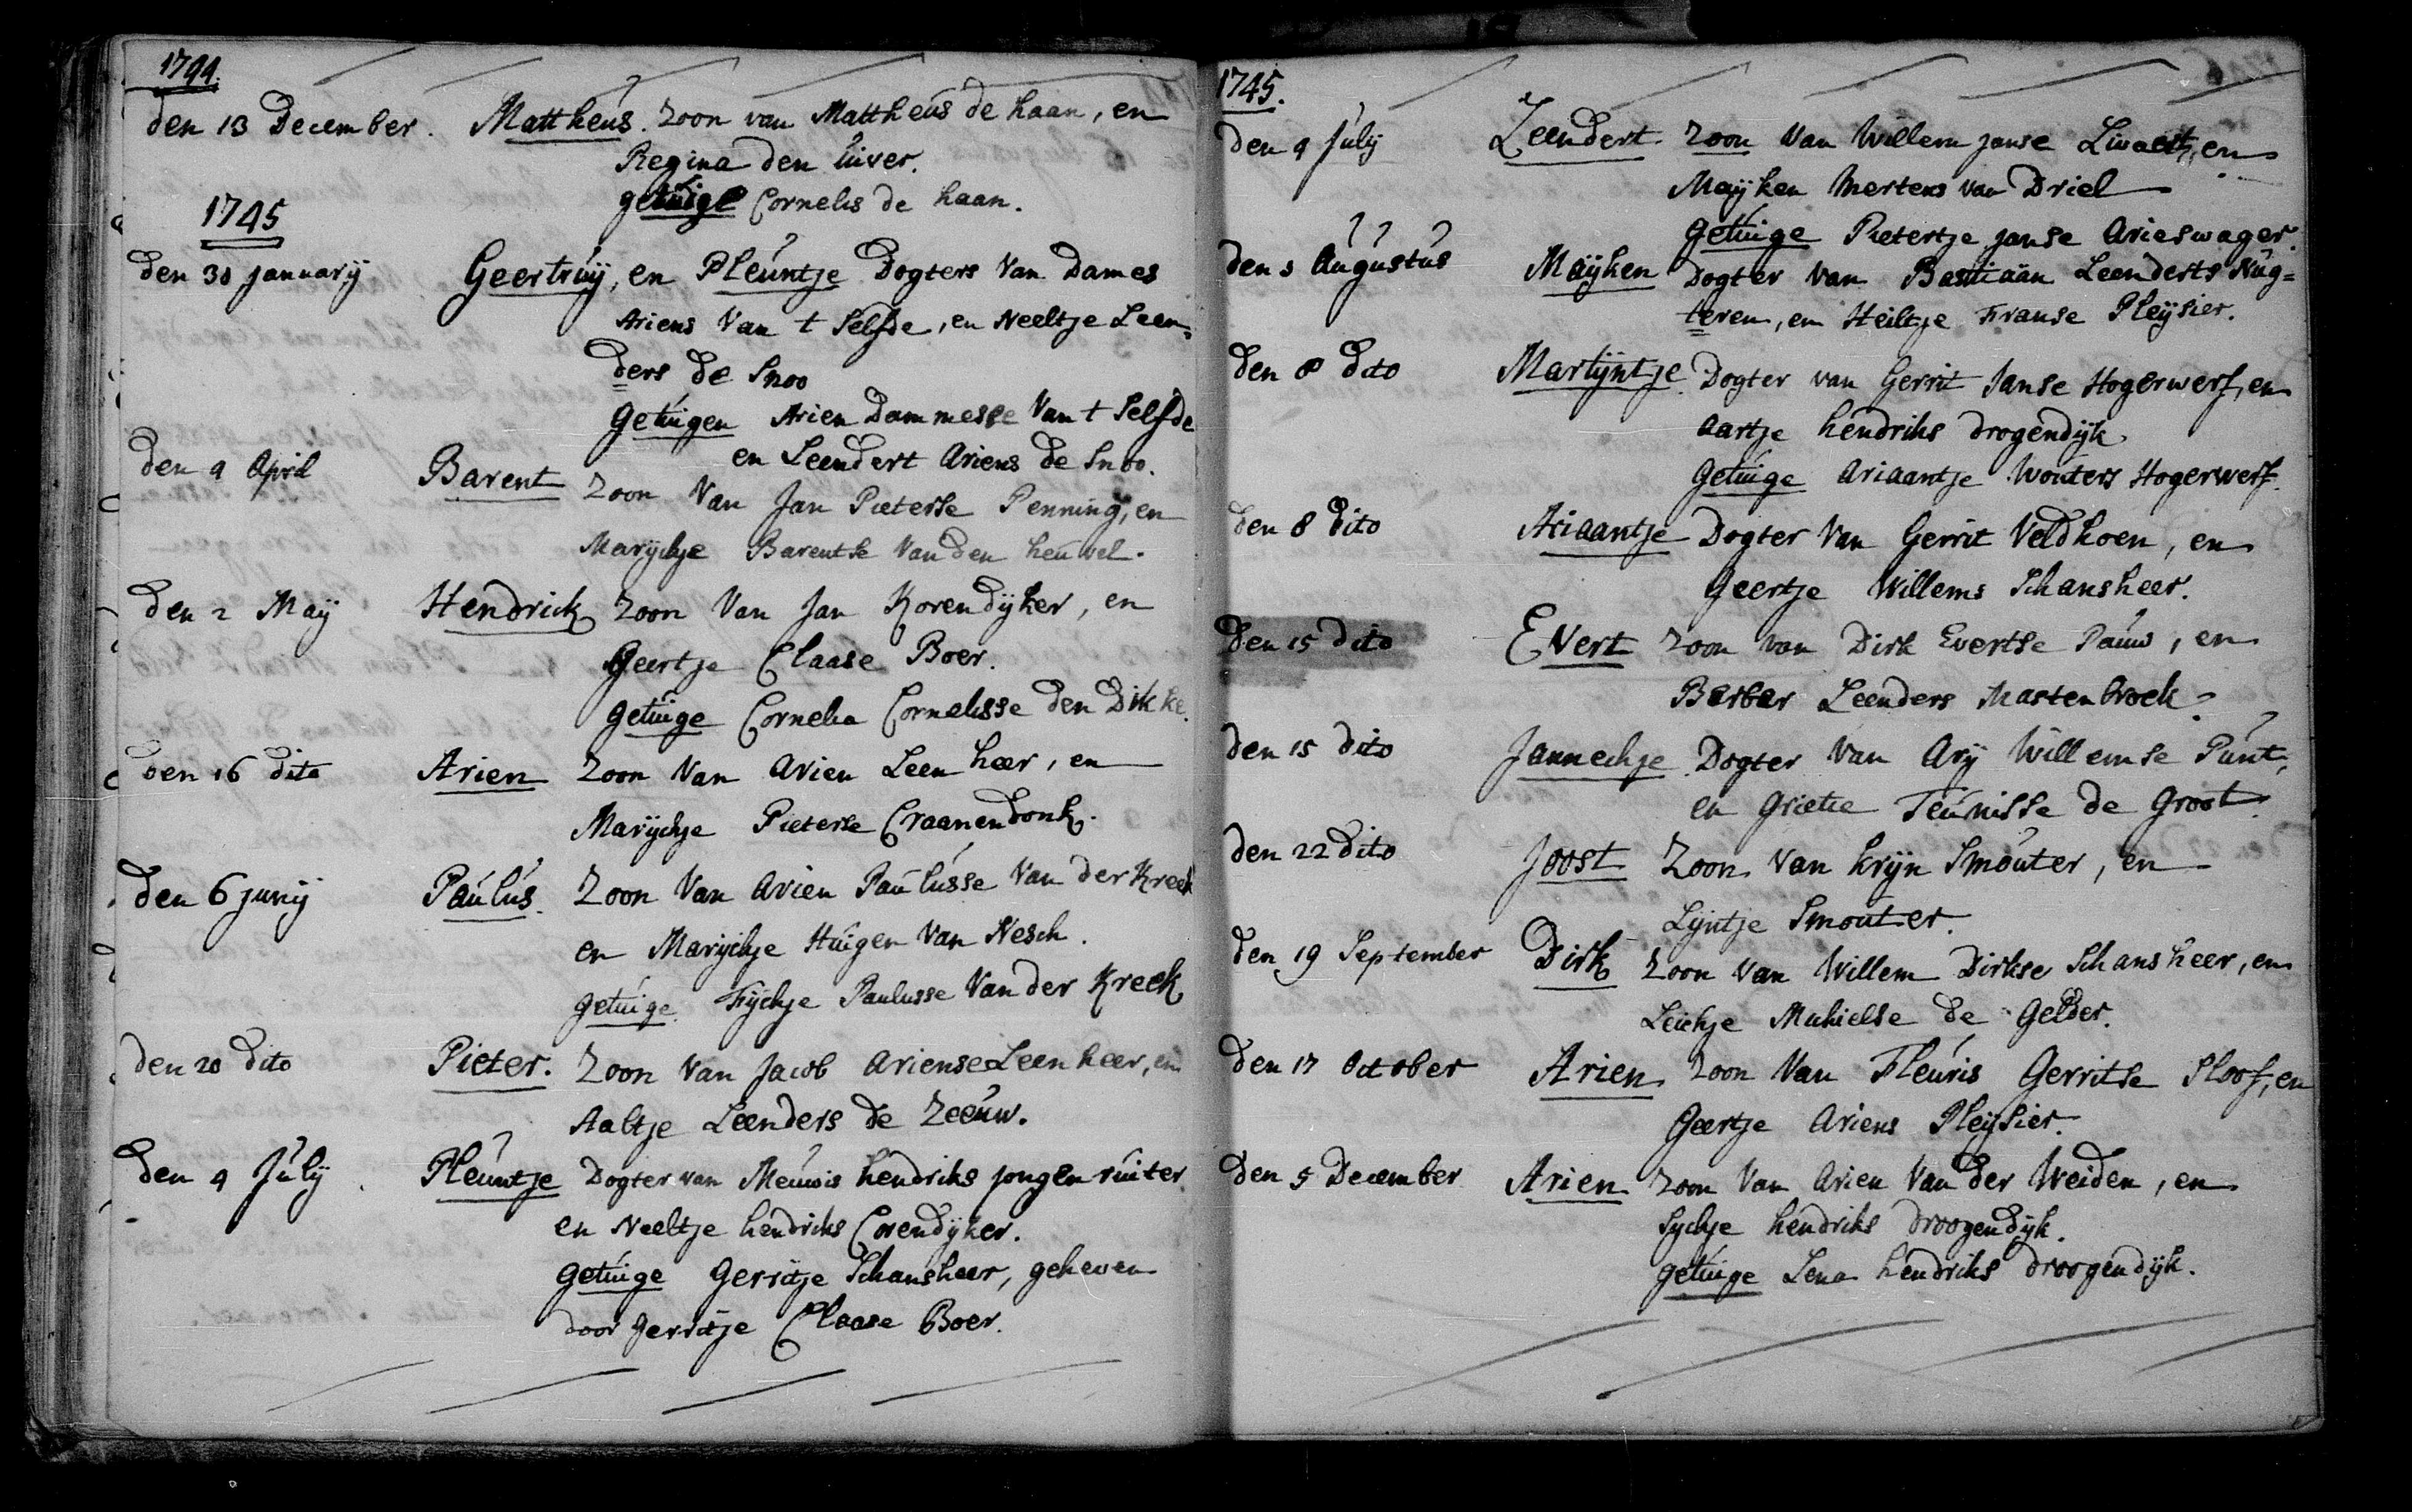 1744.
den 13 December. Mattheus. Zoon van Mattheus de haan, en
Regina den uiver.
getuige Cornelis de haan.
1745
den 30 January Geertruy, en Pleuntje Dogters Van Dames
Ariens Van t Selfde, en Neeltje Leen=
ders de Snoo
Getuigen Arien Dammesse Van t Selfde
en Leendert Ariens de Snoo.
den 9 April Barent Zoon Van Jan Pieterse Penning, en
Marijchje Barentse Van den heuvel.
den 2 Maÿ Hendrick Zoon Van Jan Korendijker, en
Geertje Claase Boer.
Getuige Cornelia Cornelisse den Dikke.
den 16 dito Arien Zoon Van Arien Leenheer, en
Marijchje Pieterse Craanendonk.
den 6 junij Paulus. Zoon Van Arien Paulusse Van der Kreek
en Marijchje Huigen Van Nesch.
getuige Fijchje Paulusse Van der Kreek
den 20 dito Pieter. Zoon Van Jacob Ariense Leenheer, en
Aaltje Leenders de Zeeuw.
den 4 July Pleuntje Dogter van Meuwis hendriks jongenruiter
en Neeltje hendriks Corendijker.
Getuige Gerritje Schansheer, geheven
door Gerritje Claase Boer.
1745.
den 4 July Leendert Zoon Van Willem janse en
Maÿken Mertens van Driel
Getuige Pietertje janse Arieswager.
den 1 Augustus Maÿken Dogter van Bastiaän Leenderts Nug=
teren, en Heiltje Franse Pleÿsier.
den 8 dito Martijntje Dogter van Gerrit Janse Hogerwerf, en
aartje hendriks drogendijk
Getuige Ariaantje Wouters Hogerwerf.
den 8 dito Ariaantje Dogter Van Gerrit Veldhoen, en
Geertje Willems Schansheer.
den 15 dito Evert Zoon van Dirk Evertse Pauw, en
Barber Leenders Mastenbroek.
den 15 dito Jannechje Dogter Van Arÿ Willemse Punt,
en Grietie Teunisse de Groot.
den 22 dito Joost Zoon Van krijn Smouter, en
Lijntje Smouter.
den 19 September Dirk Zoon Van Willem Dirkse Schansheer, en
Leichje Michielse de Gelder.
den 17 October Arien Zoon Van Fleuris Gerritse Sloof, en
Geertje Ariens Pleÿsier.
den 5 December Arien Zoon Van Arien Van der Weiden, en
Sijchje hendriks droogendijk.
getuige Lena hendriks droogendijk.